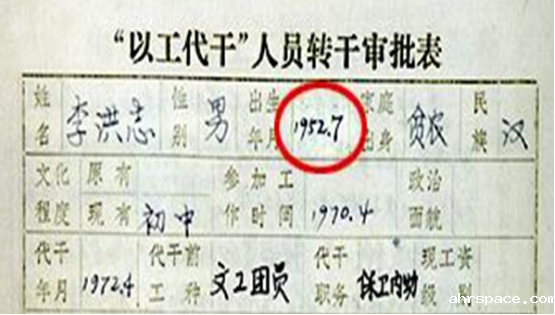 “以工代干”人员转干审批表
姓名 李洪志 性别 男 出生年月 1952.7 家庭出身 贫农 民族 汉
文化程度 原有 现有 初中 参加工作时间 1970.4 政治面貌
代干年月 1972.4 代干前工种 文工团员 代干职务 保卫内勤 现工资级别
ahrspace.com